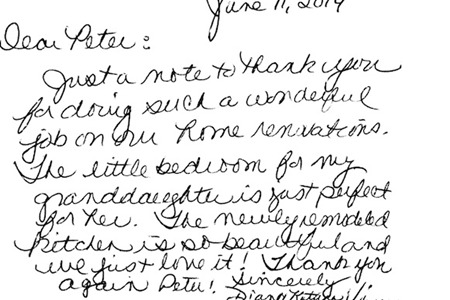 June 11, 2014
Dear Peter:
Just a note to thank you
for doing such a wonderful
job on our home renovations.
The little bedroom for my
granddaughter is just perfect
for her. The newly remodeled
kitchen is so beautiful and
we just love it! Thank you
again Peter! Sincerely
Diana